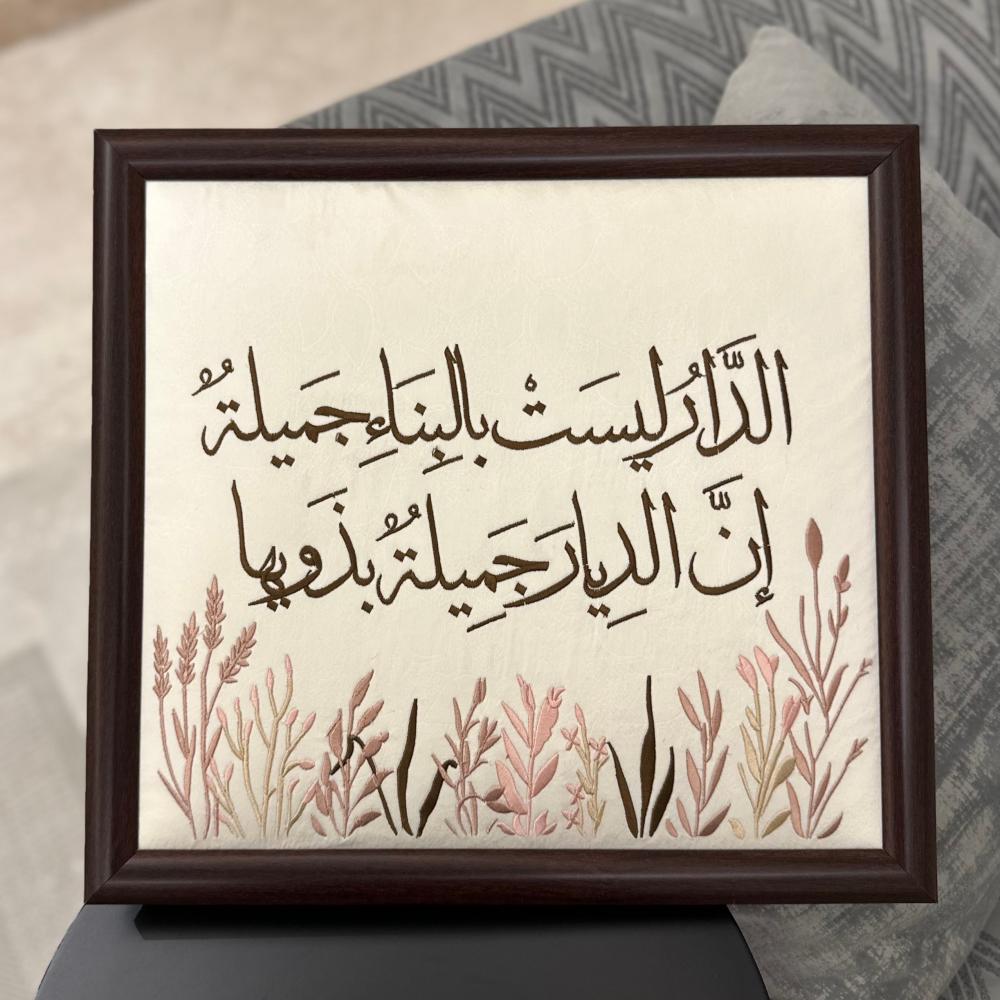 الدَّارُ ليسَتْ بالبِنَاءِ جَميلةٌ
إنَّ الدِيارَ جَمِيلةٌ بذَويها